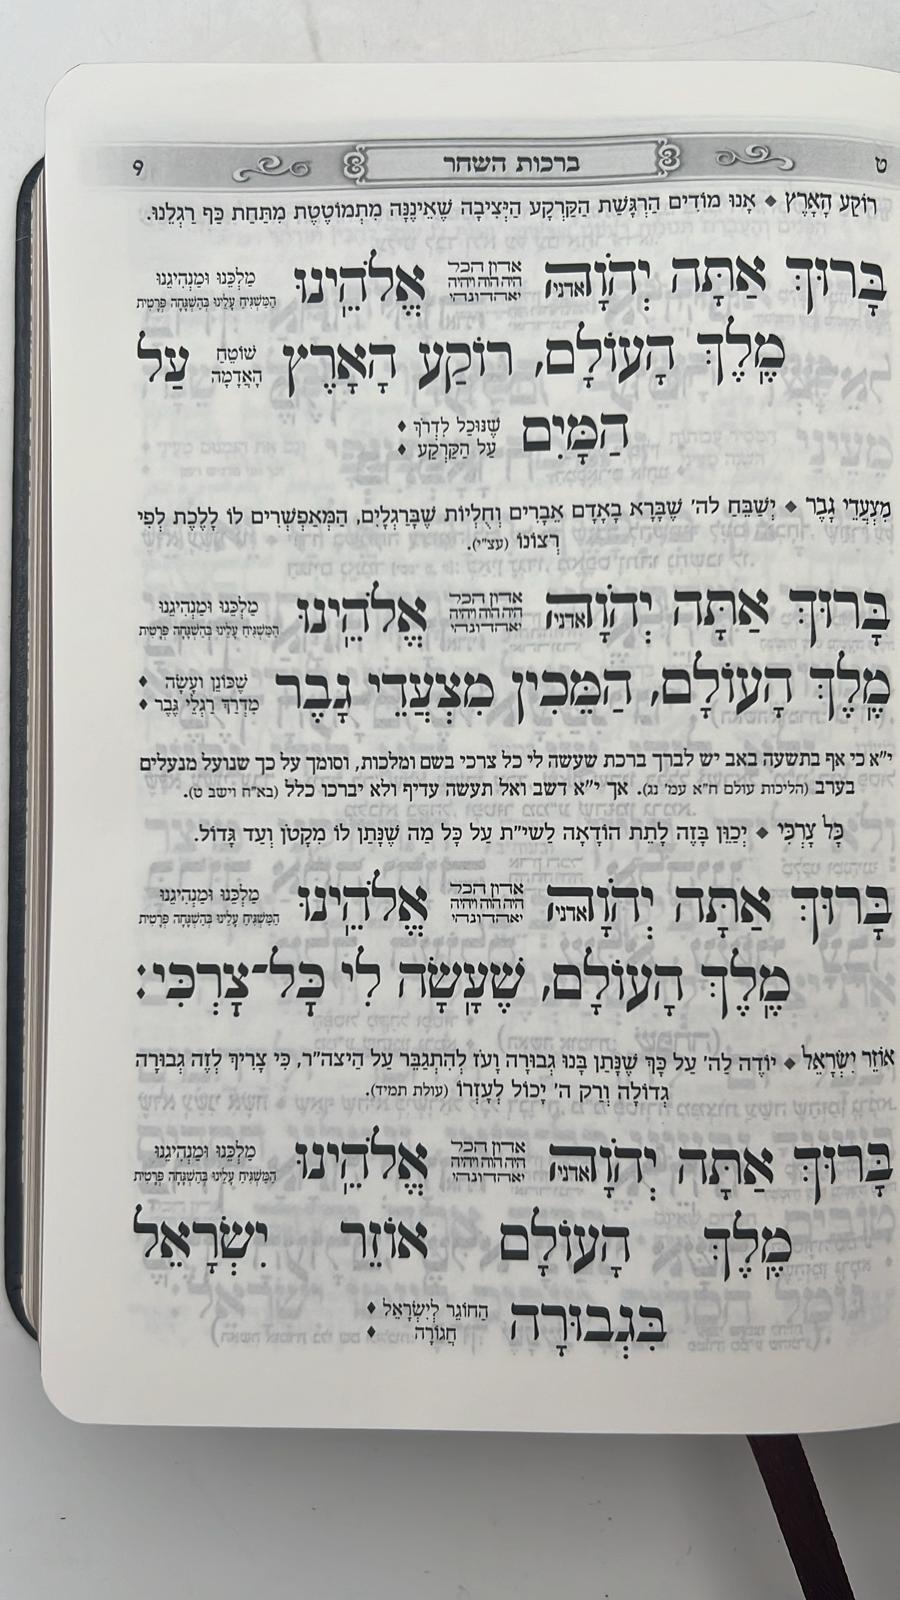 ט ברכות השחר 9
רוֹקַע הָאָרֶץ ◆ אָנוּ מוֹדִים הַרְגָּשַׁת הַקַּרְקַע הַיְּצִיבָה שֶׁאֵינֶנָּה מִתְמוֹטֶטֶת מִתַּחַת כַּף רַגְלֵנוּ.
בָּרוּךְ אַתָּה יְהֹוָה אדני אדון הכל היה הוה ויהיה יאהדונהי אֱלֹהֵינוּ מַלְכֵּנוּ וּמַנְהִיגֵנוּ הַמַּשְׁגִּיחַ עָלֵינוּ בְּהַשְׁגָּחָה פְּרָטִית
מֶלֶךְ הָעוֹלָם, רוֹקַע הָאָרֶץ שׁוֹטֵחַ הָאֲדָמָה עַל
הַמָּיִם שֶׁנּוּכַל לִדְרֹךְ עַל הַקַּרְקַע ◆
מִצְעֲדֵי גָבֶר ◆ יְשַׁבֵּחַ לה' שֶׁבָּרָא בָאָדָם אֵבָרִים וְחֻלְיוֹת שֶׁבָּרַגְלַיִם, הַמְּאַפְשְׁרִים לוֹ לָלֶכֶת לְפִי
רְצוֹנוֹ (עצ"י).
בָּרוּךְ אַתָּה יְהֹוָה אדני אדון הכל היה הוה ויהיה יאהדונהי אֱלֹהֵינוּ מַלְכֵּנוּ וּמַנְהִיגֵנוּ הַמַּשְׁגִּיחַ עָלֵינוּ בְּהַשְׁגָּחָה פְּרָטִית
מֶלֶךְ הָעוֹלָם, הַמֵּכִין מִצְעֲדֵי גָבֶר שֶׁכּוֹנֵן וְעָשָׂה מִדְרַךְ רַגְלֵי גֶּבֶר ◆
י"א כי אף בתשעה באב יש לברך ברכת שעשה לי כל צרכי בשם ומלכות, וסומך על כך שנועל מנעלים
בערב (הליכות עולם ח"א עמ' נג). אך י"א דשב ואל תעשה עדיף ולא יברכו כלל (בא"ח וישב ט).
כָּל צָרְכִּי ◆ יְכַוֵּן בָּזֶה לָתֵת הוֹדָאָה לַשי"ת עַל כָּל מַה שֶּׁנָּתַן לוֹ מִקָּטֹן וְעַד גָּדוֹל.
בָּרוּךְ אַתָּה יְהֹוָה אדני אדון הכל היה הוה ויהיה יאהדונהי אֱלֹהֵינוּ מַלְכֵּנוּ וּמַנְהִיגֵנוּ הַמַּשְׁגִּיחַ עָלֵינוּ בְּהַשְׁגָּחָה פְּרָטִית
מֶלֶךְ הָעוֹלָם, שֶׁעָשָׂה לִי כָּל־צָרְכִּי:
אוֹזֵר יִשְׂרָאֵל ◆ יוֹדֶה לַה' עַל כָּךְ שֶׁנָּתַן בָּנוּ גְבוּרָה וָעֹז לְהִתְגַּבֵּר עַל הַיצה"ר, כִּי צָרִיךְ לָזֶה גְבוּרָה
גְדוֹלָה וְרַק ה' יָכוֹל לְעָזְרוֹ (עולת תמיד).
בָּרוּךְ אַתָּה יְהֹוָה אדני אדון הכל היה הוה ויהיה יאהדונהי אֱלֹהֵינוּ מַלְכֵּנוּ וּמַנְהִיגֵנוּ הַמַּשְׁגִּיחַ עָלֵינוּ בְּהַשְׁגָּחָה פְּרָטִית
מֶלֶךְ הָעוֹלָם אוֹזֵר יִשְׂרָאֵל
בִּגְבוּרָה הַחוֹגֵר לְיִשְׂרָאֵל חֲגוֹרָה ◆